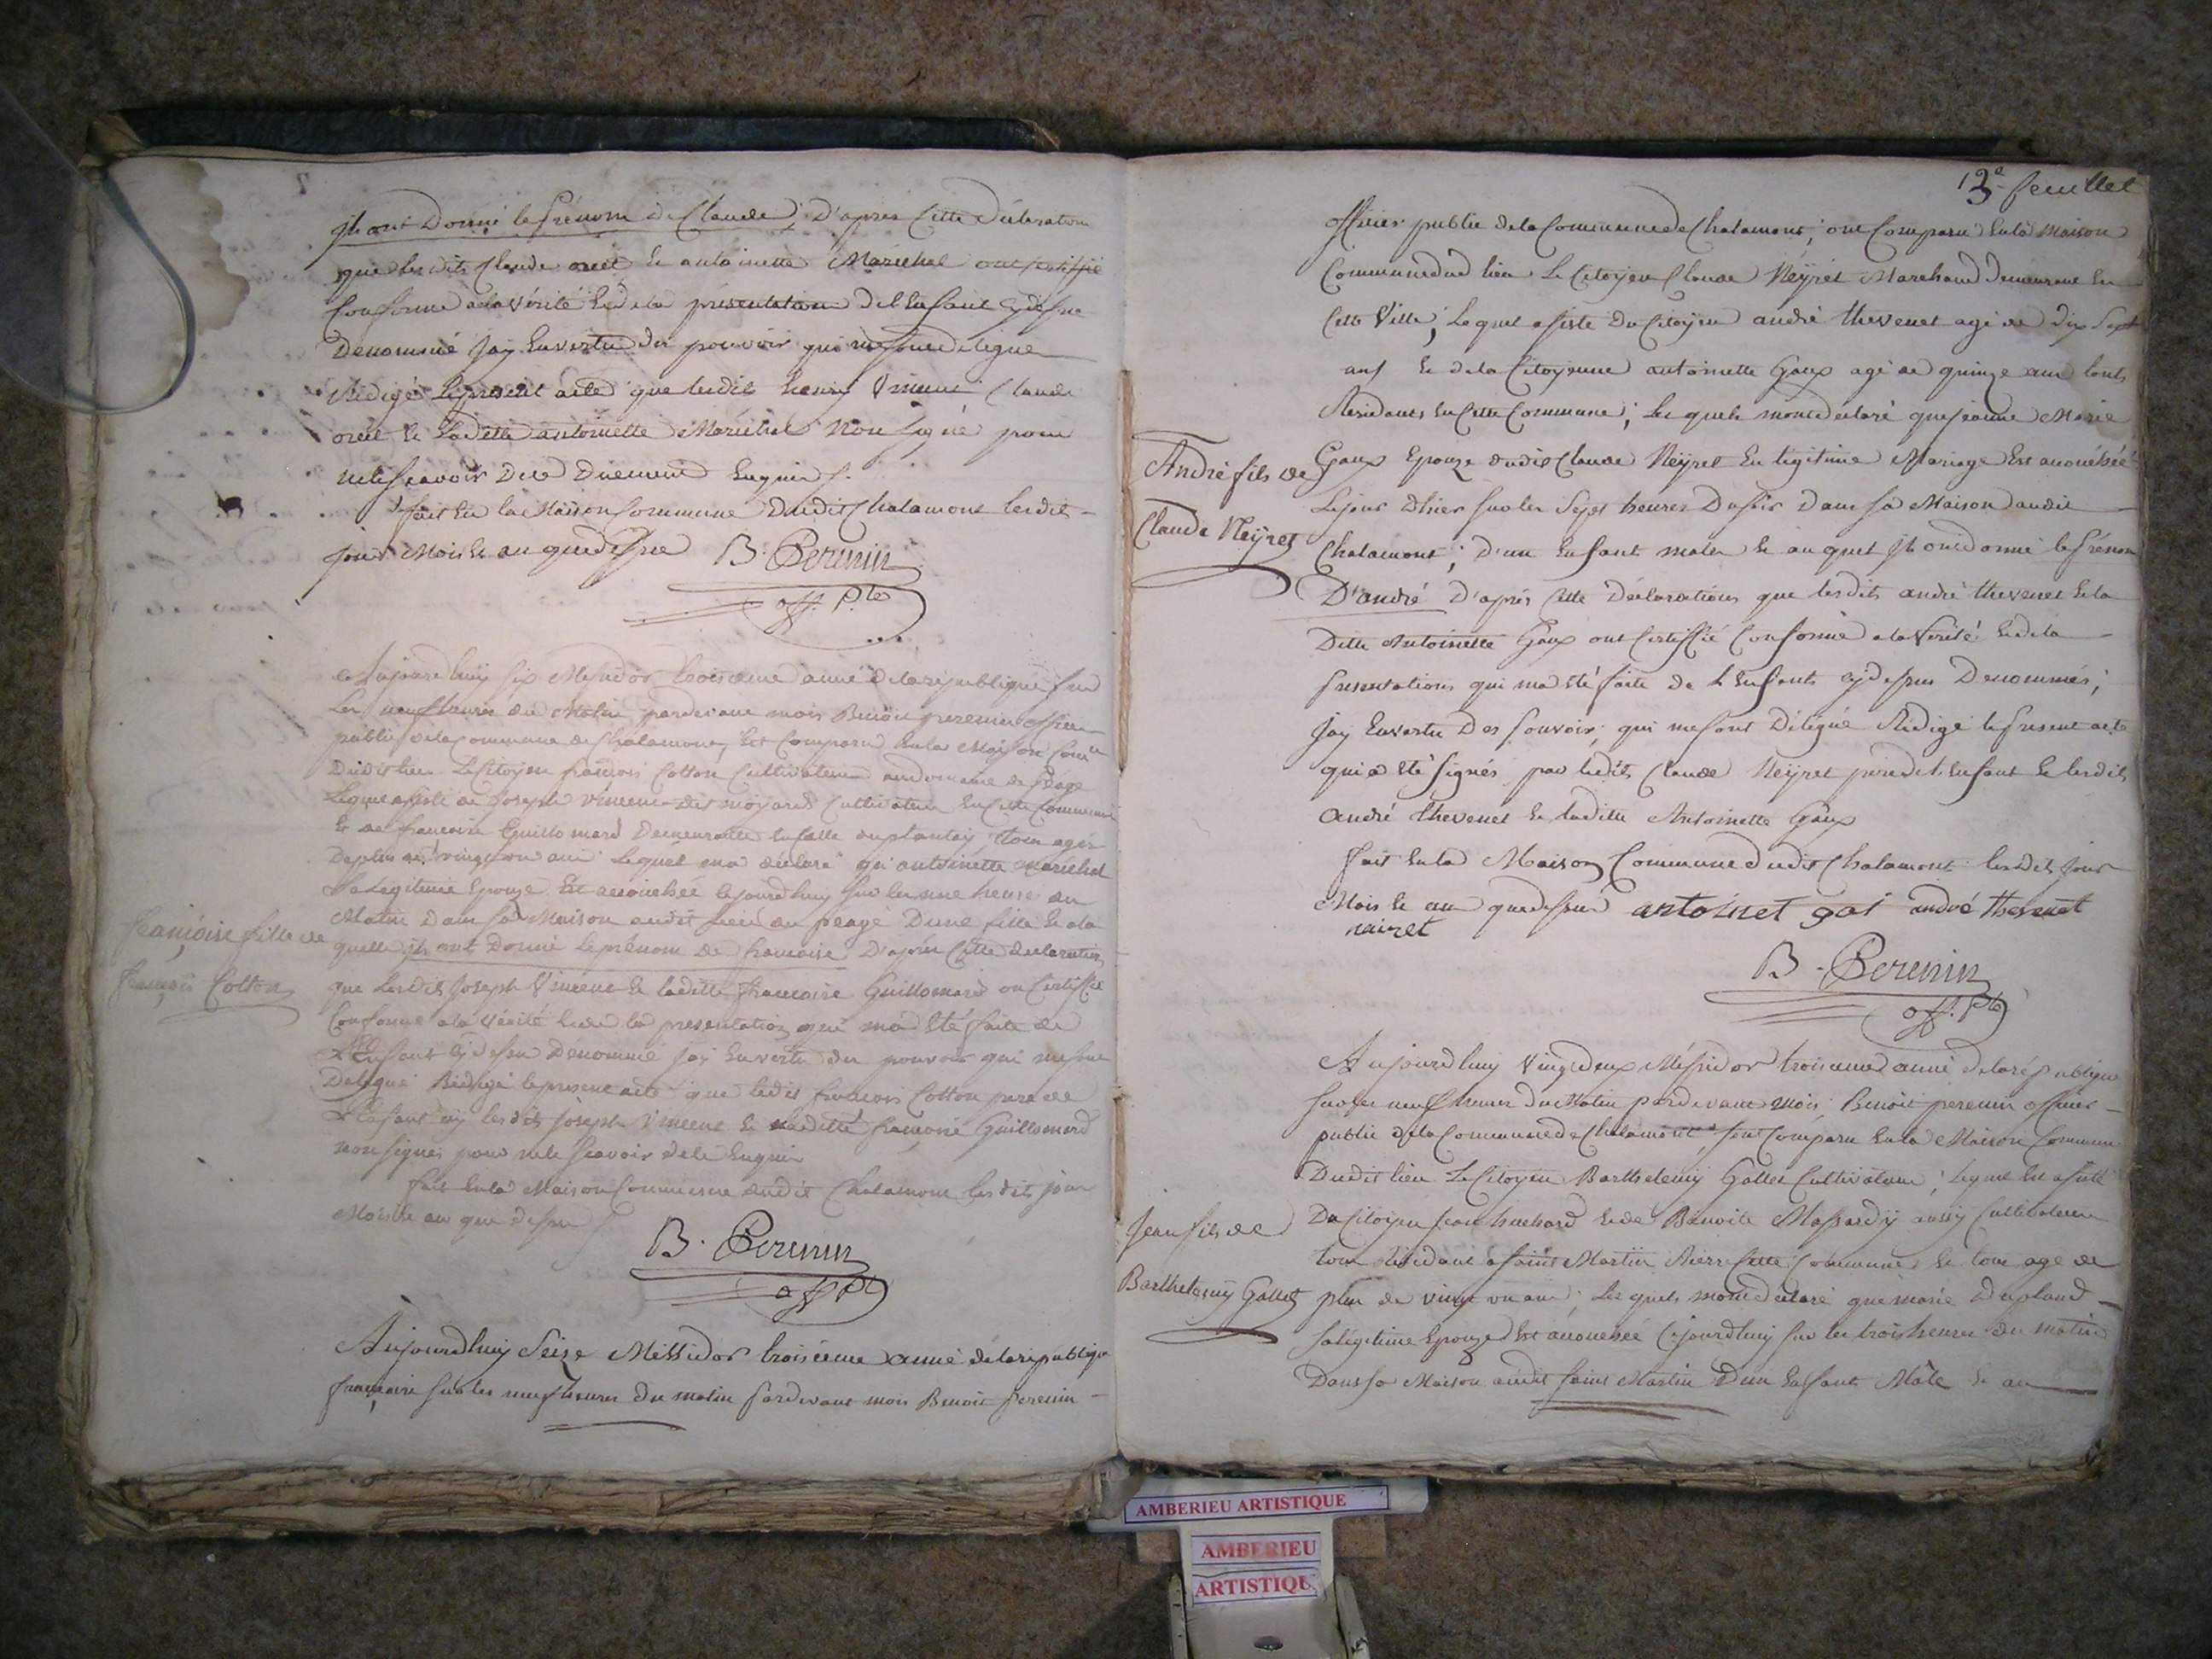 ils ont Donné le Prénom de Claude; D'apres Cette Déclaration
que les dits Claude et antoinette Maréchal ont certiffié
Conforme a la Vérité Et de la présentation de l'Enfant cy dessus
Dénommé Jay En vertu des pouvoir qui me sont délégué
Rédigés le présent acte que ledit Vincent Claude
et Laditte antoinette Maréchal Non Signé pour
ne le scavoir De ce Duement Enquis
fait En la Maison Commune Dudit Chalamont lesdits
jour Mois et an que dessus B. Perenin
off. P.
Aujourdhuy six Messidor troisieme anné de la république sur
Les neuf heures du Matin pardevant mois Benoit perenin officier
public de la Commune de Chalamont, Est Comparu En la Maison Com
Dudit lieu Le Citoyen francois Cotton Cultivateur au domaine de péage
Lequel assisté de Joseph Vincent dit moyard Cultivateur En Cette Commune
Et de francoise Guillomard Demeurante En Celle du plantay, tous agés
De plus de vingt un ans Lequel ma déclaré qu'antoinette Maréchal
Sa Légitime Epouze Est accouchée Cejourdhuy sur les une heure du
Matin Dans sa Maison audit lieu du péage D'une fille Et a la
françoise fille de
quelle ils ont Donné le prénom de francoise. D'après Cette déclaration
françois Cotton
que Lesdits Joseph Vincent Et laditte francoise Guillomard on Certiffié
Conforme a la Vérité Et de la présentation qui ma Eté faite de
L'Enfant cy dessus Dénommé jay En vertu des pouvoir qui me sont
Délégué Rédigé le présent acte que ledit francois Cotton pere de
L'Enfant ny lesdits Joseph Vincent Et laditte françoise Guillomard
non signés pour ne le scavoir de ce Enquis
fait En la Maison Commune dudit Chalamont lesdits jour
Mois et an que dessus
B. Perenin
off. P.
Aujourdhuy Seize Messidor troisieme anné de la république
françaire sur les neuf heures du matin Pardevant mois Benoit Perenin
13e feuillet
officier public de la Commune de Chalamont, ont Comparu En la Maison
Commune dud lieu Le Citoyen Claude Neyret Marchand Demeurant En
Cette Ville, Lequel assisté Du Citoyen andré thevenet agé de dix Sept
ans Et de la Citoyenne antoinette Gaux agé de quinze ans touts
Residants En Cette Commune; Lesquels mont déclaré que jeanne Marie
André fils de
Gaux Epouze dudit Claude Neyret En légitime Mariage Est accouchée
Le jour d'hier sur les Sept heures Du soir Dans sa Maison audit
Claude Neyret
Chalamont; D'un Enfant male Et auquel ils ont donné le Prénom
D'andré D'après Cette Déclarations que lesdits andré thevenet Et la
Ditte Antoinette Gaux ont Certiffié Conforme a la Verité Et de la
Présentations qui ma Eté faite de L'Enfant cy dessus Dénommés;
Jay En vertu Des Pouvoir; qui me sont Délégué Rédigé le Présent acte
qui a Eté Signés par ledits Claude Neyret pere de L'Enfant Et lesdits
andré thevenet Et laditte Antoinette Gaux
fait En la Maison Commune dudit Chalamont lesdits jour
Mois Et an que dessus antoinet gai andré thevenet
nairet
B. Perenin
off. P.
Aujourdhuy Vingt deux Messidor troisieme anné de la république
sur les neuf heures du Matin Pardevant mois, Benoit perenin officier
public de la Commune de Chalamont, sont Comparu En la Maison Commune
Dudit lieu Le Citoyen Barthelemy Gallet Cultivateur; Lequel Est assisté
Jean fils de
Du Citoyen jean Et de Benoite Massardÿ aussy Cultivateur
tous résidant a saint Martin Cette Commune Et tous agé de
Barthelemy Gallet
plus de vingt un ans; Lesquels mont déclaré que marie Dupland
sa légitime Epouze Est accouchée Cejourdhuy sur les trois heures du matin
Dans sa Maison audit saint Martin D'un Enfant Mâle Et au
AMBERIEU ARTISTIQUE
AMBERIEU
ARTISTIQUE